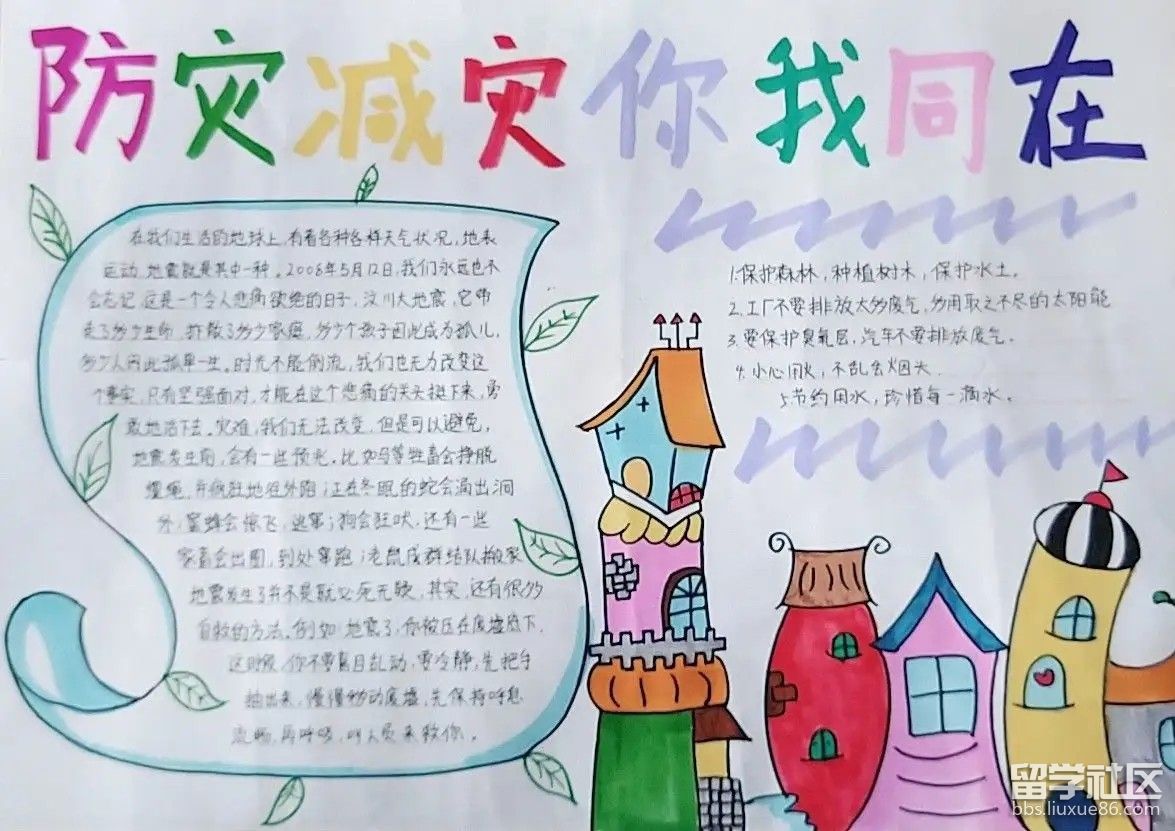 防灾减灾你我同在
在我们生活的地球上,有着各种各样天气状况,地表
运动.地震就是其中一种.2008年5月12日,我们永远也不
会忘记.这是一个令人悲痛欲绝的日子,汶川大地震,它带
走了多少生命,拆散了多少家庭,多少个孩子因此成为孤儿,
多少人因此孤单一生。时光不能倒流,我们也无力改变这
个事实,只有坚强面对,才能在这个悲痛的关头挺下来,勇
敢地活下去。灾难,我们无法改变,但是可以避免。
地震发生前,会有一些预兆。比如马等牲畜会挣脱
缰绳,并疯狂地往外跑;正在冬眠的蛇会涌出洞
外;蜜蜂会惊飞,逃窜;狗会狂吠,还有一些
家畜会出圈,到处窜跑;老鼠成群结队搬家
地震发生了并不是就必死无疑,其实,还有很多
自救的方法。例如:地震了,你被压在废墟底下,
这时候,你不要盲目乱动,要冷静,先把手
抽出来,慢慢挪动废墟,先保持呼吸
流畅,再呼喊,叫人员来救你。
1.保护森林,种植树木,保护水土。
2.工厂不要排放太多废气,多用取之不尽的太阳能
3.要保护臭氧层,汽车不要排放废气。
4.小心用火,不乱丢烟头.
5节约用水,珍惜每一滴水。
留学社区
bbs.liuxue86.com